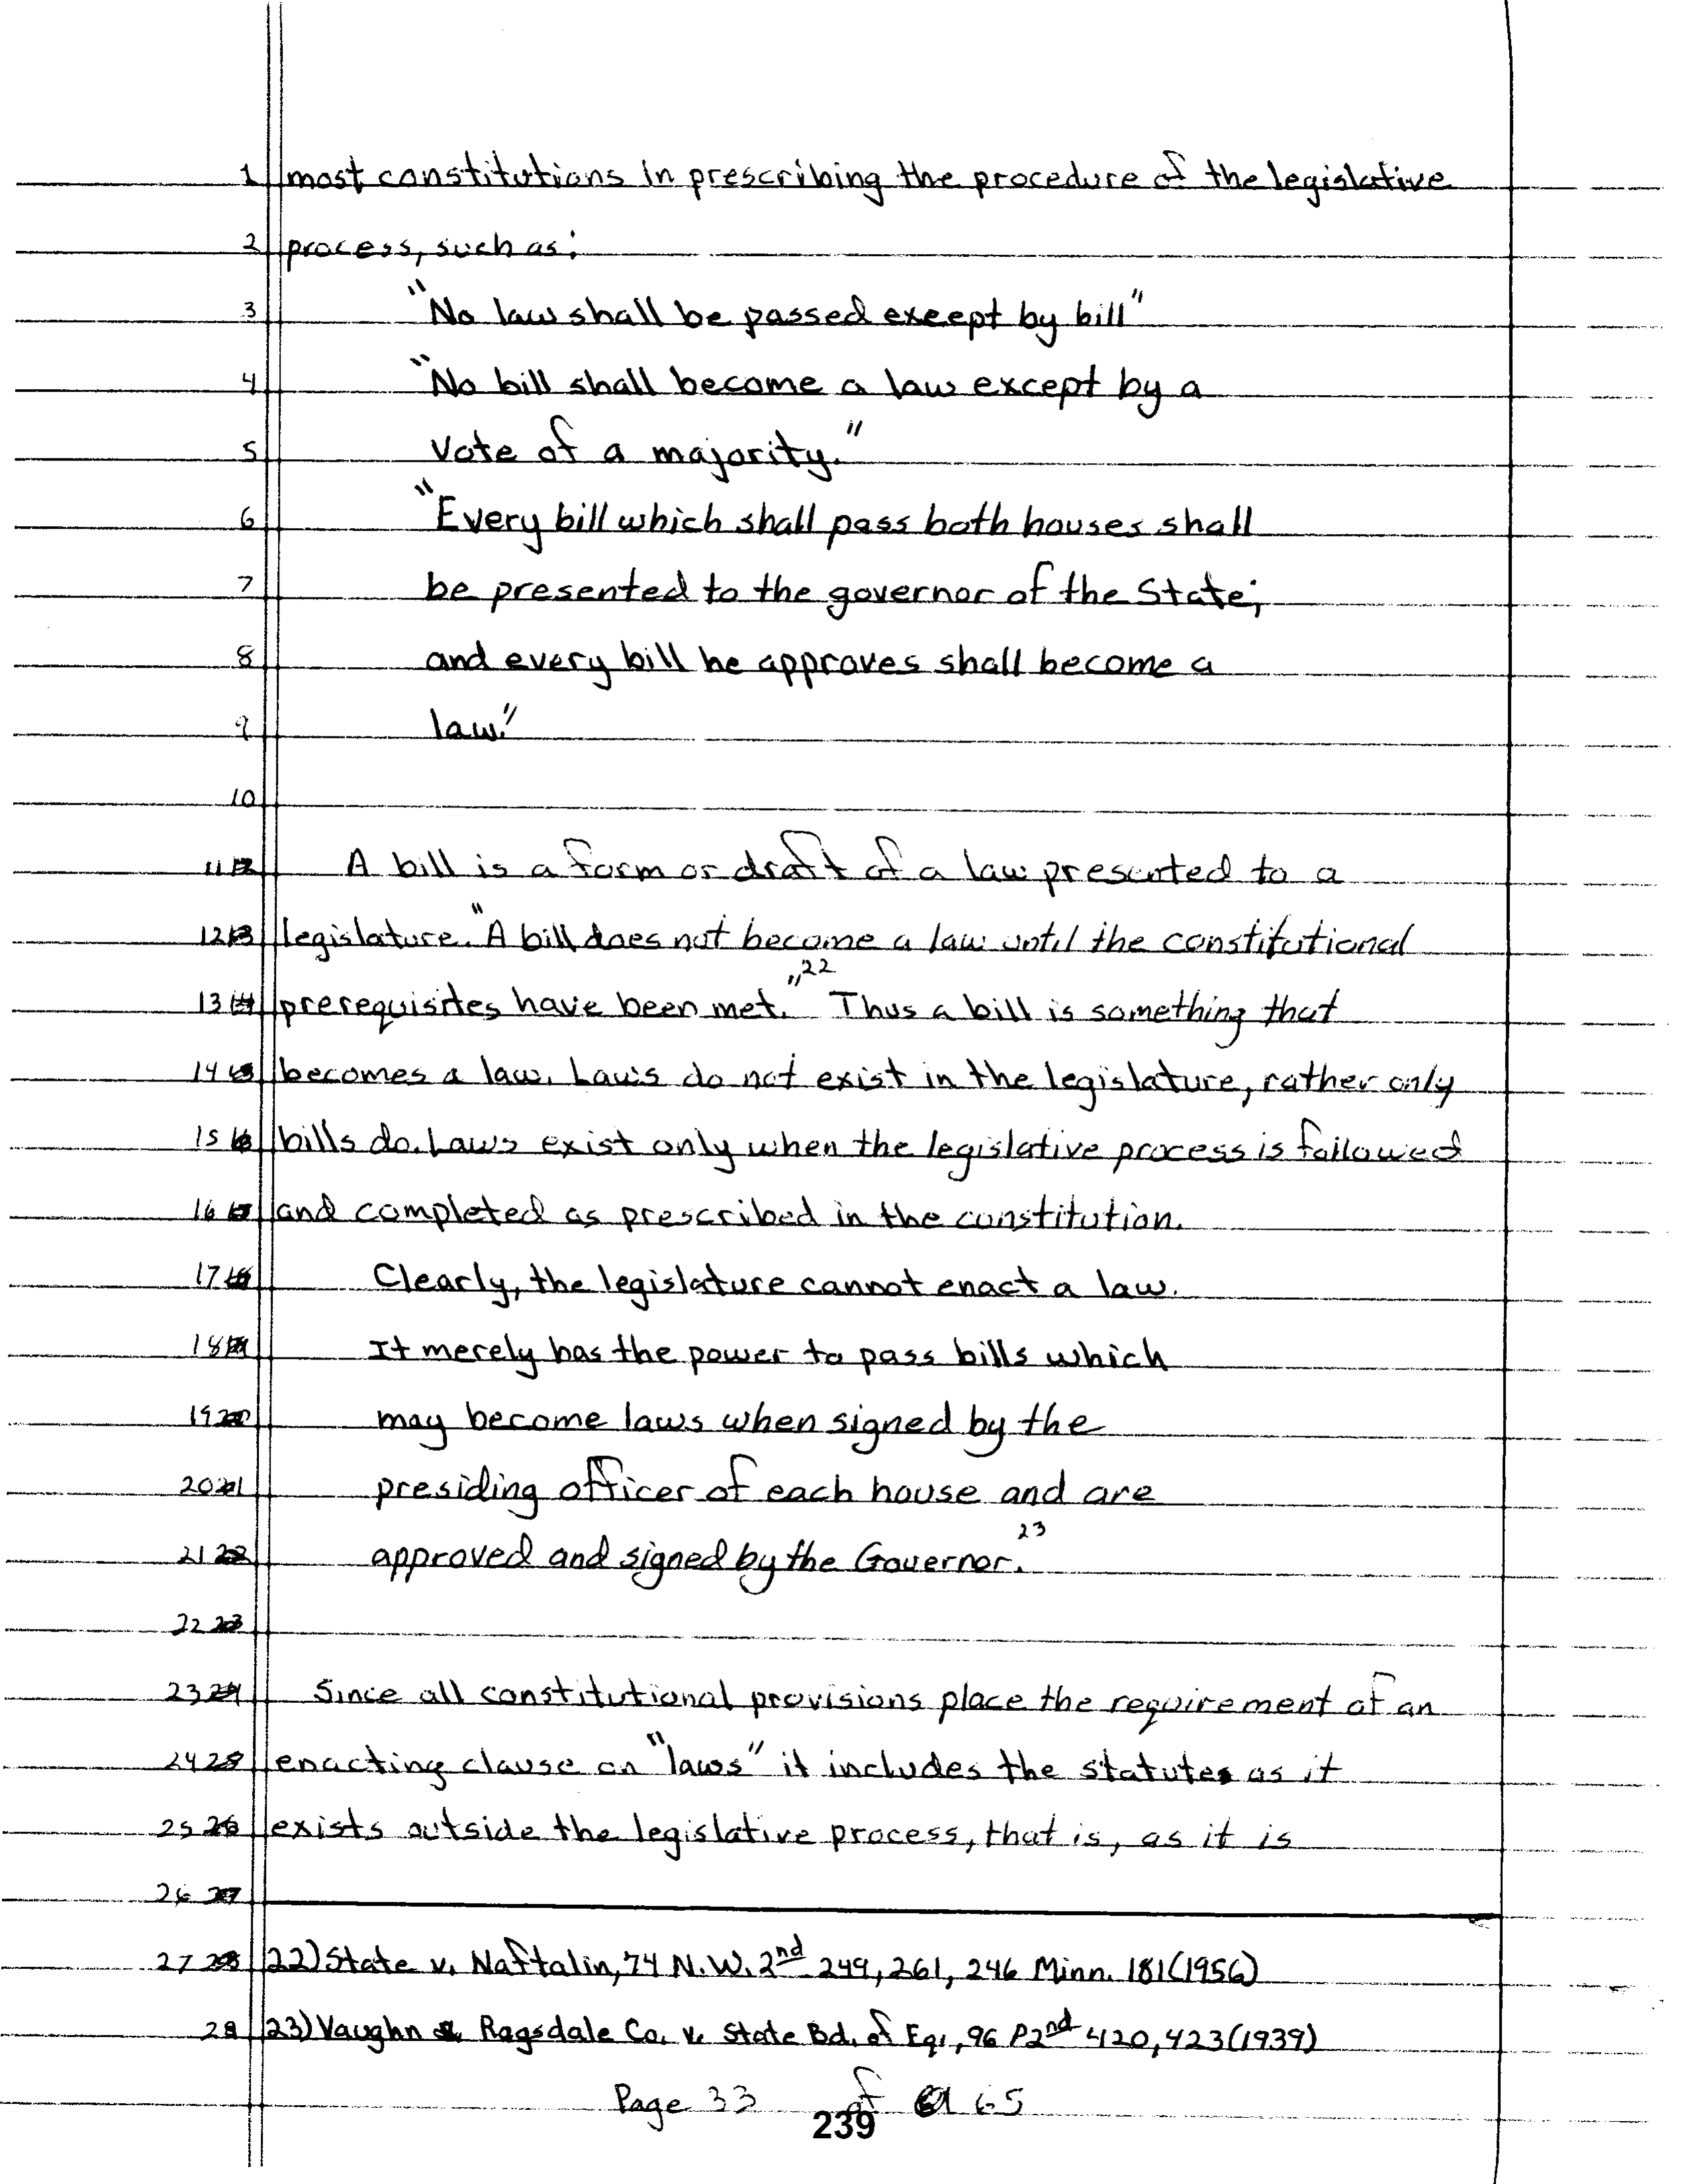 1 most constitutions in prescribing the procedure of the legislative
2 process, such as:
3 "No law shall be passed except by bill"
4 "No bill shall become a law except by a
5 vote of a majority."
6 "Every bill which shall pass both houses shall
7 be presented to the governor of the State;
8 and every bill he approves shall become a
9 law."
10
11 A bill is a form or draft of a law presented to a
12 legislature. "A bill does not become a law until the constitutional
13 prerequisites have been met."22 Thus a bill is something that
14 becomes a law. Laws do not exist in the legislature, rather only
15 bills do. Laws exist only when the legislative process is followed
16 and completed as prescribed in the constitution.
17 Clearly, the legislature cannot enact a law.
18 It merely has the power to pass bills which
19 may become laws when signed by the
20 presiding officer of each house and are
21 approved and signed by the Governor.23
22
23 Since all constitutional provisions place the requirement of an
24 enacting clause on "laws" it includes the statutes as it
25 exists outside the legislative process, that is, as it is
26
27 22) State v. Naftalin, 74 N.W. 2nd 249, 261, 246 Minn. 181 (1956)
28 23) Vaughn & Ragsdale Co. v. State Bd. of Eq., 96 P2nd 420, 423 (1939)
Page 33 of 65
239